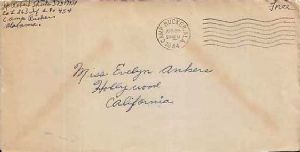 Co. I 263 Inf. A.P.O. 454
Camp Rucker
Alabama.
CAMP RUCKER, ALA.
1944
Free
Miss Evelyn Ankers
Hollywood
California